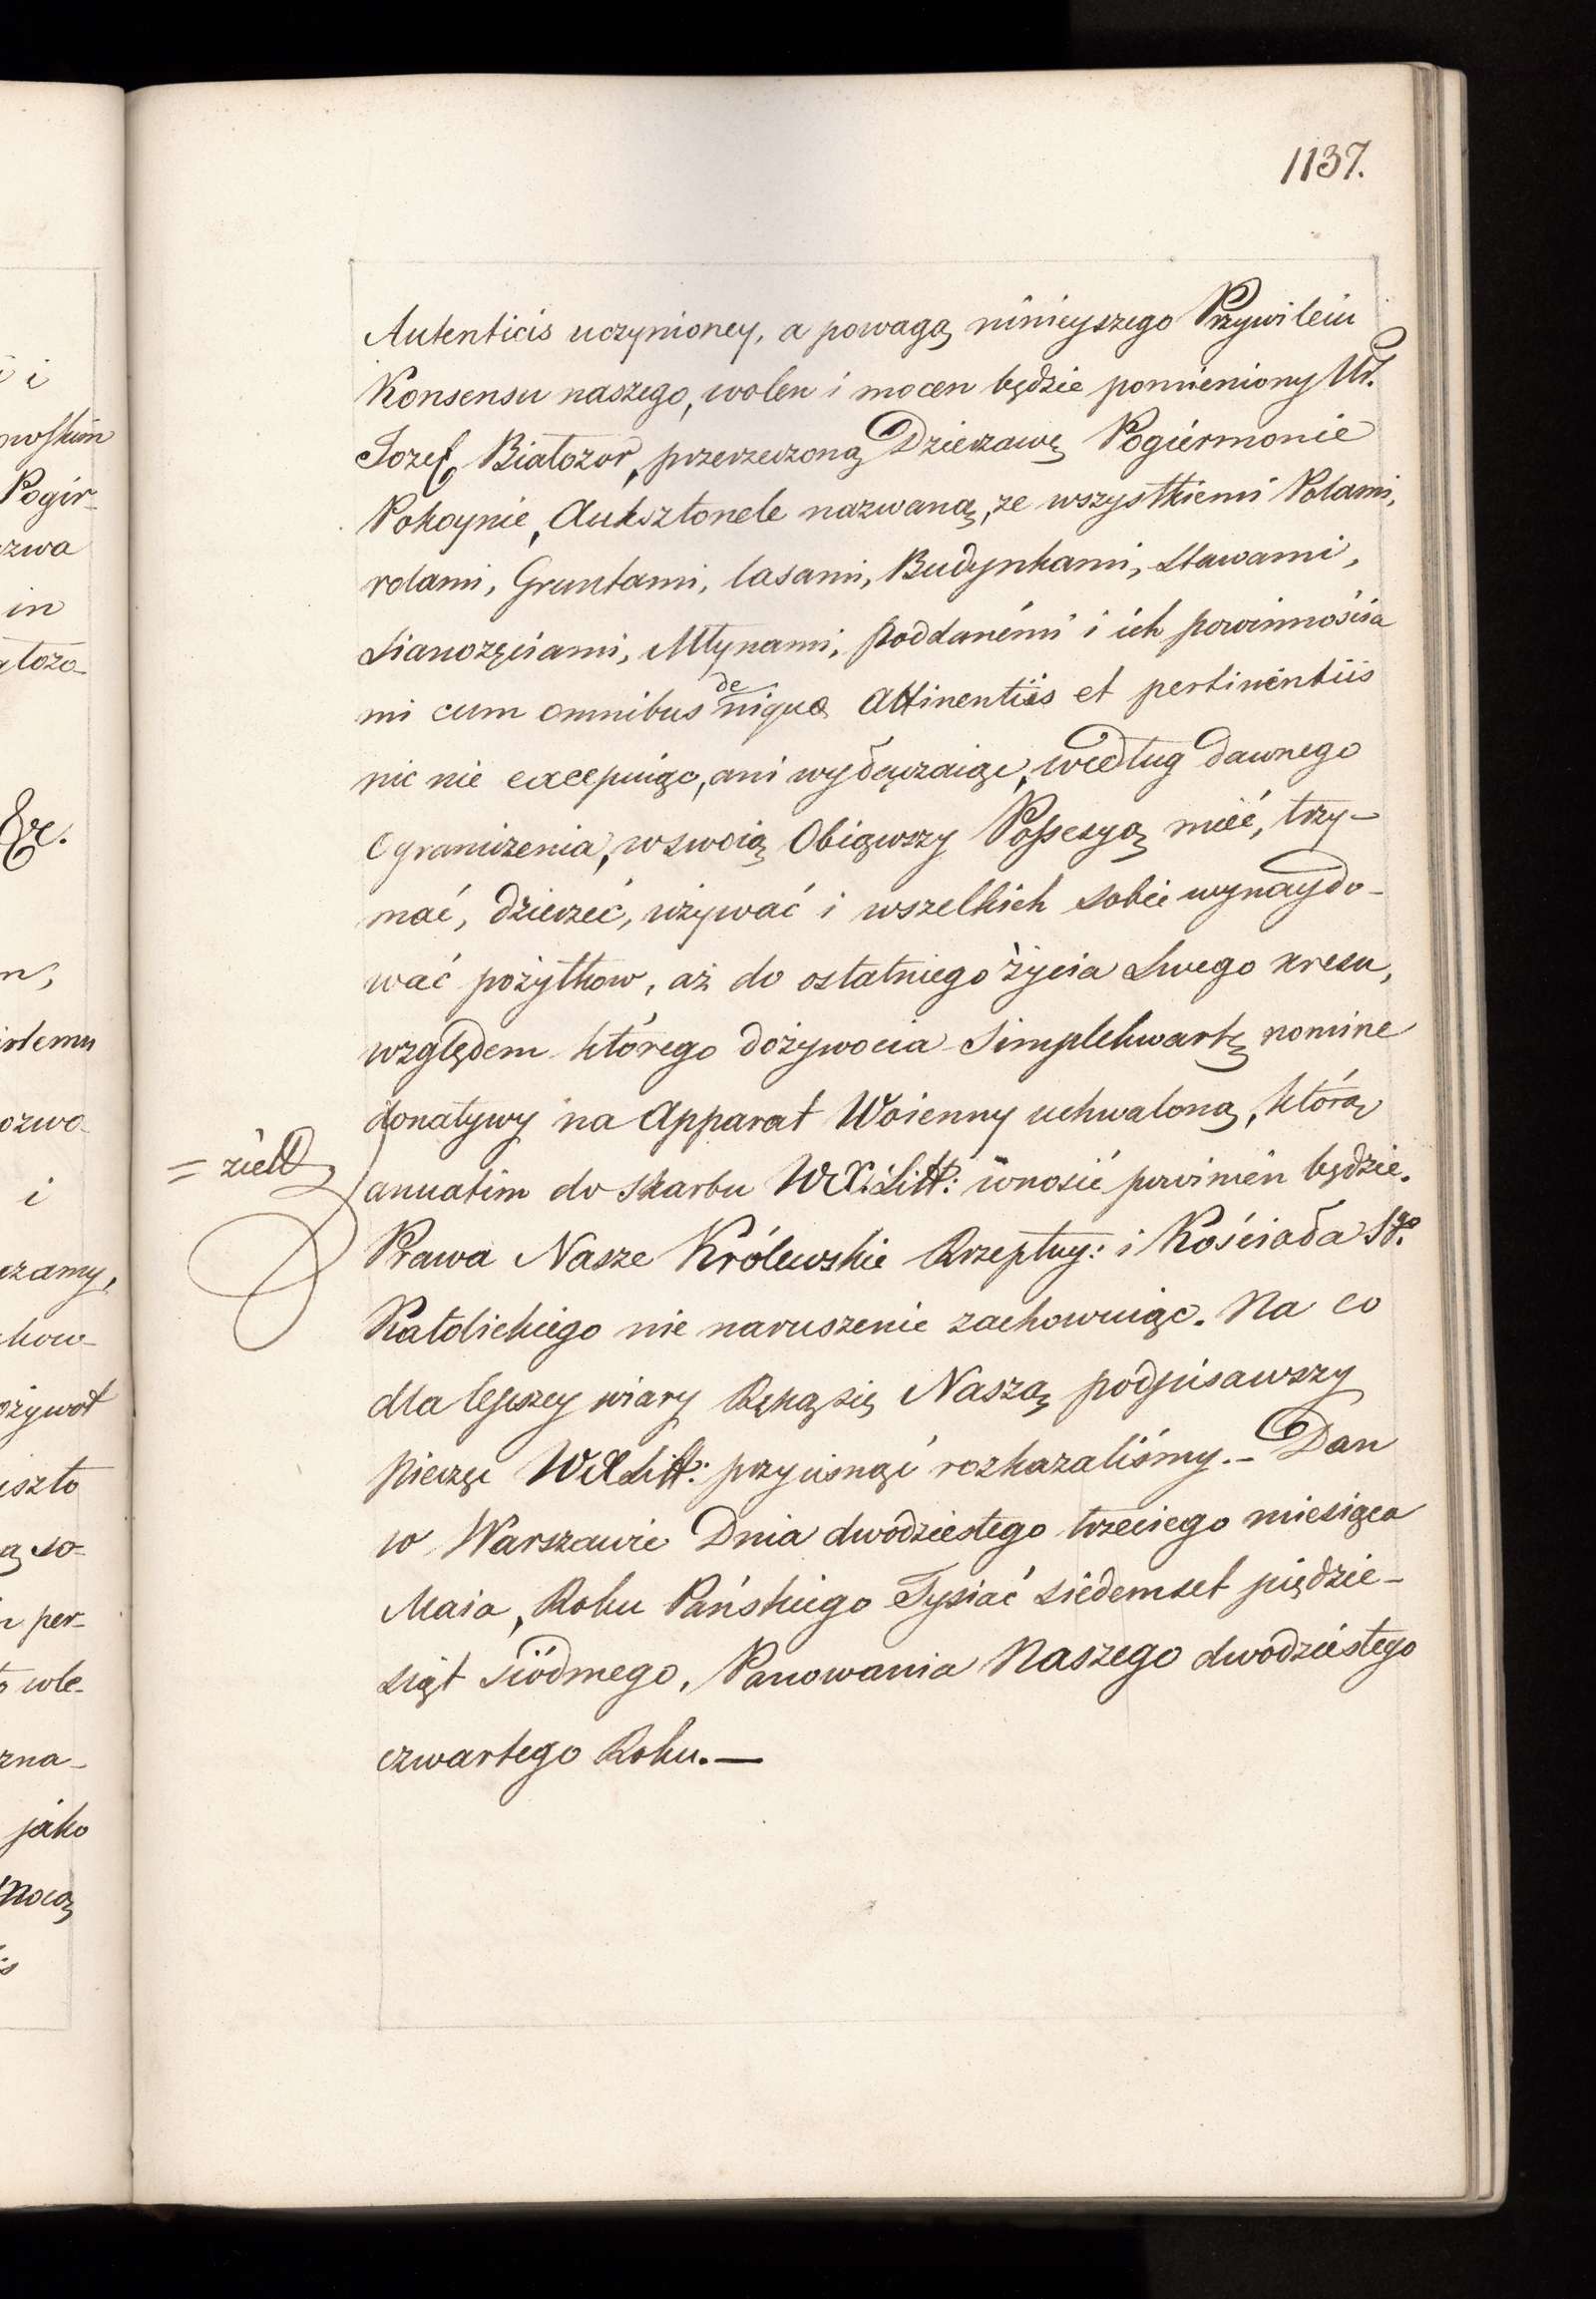 1137.
Autenticis uczynioney, a powagą ninieyszego Przywileiu
Konsensu naszego, wolen i mocen będzie pomieniony Ur.
Jozef Białozor, przerzeczoną Dzierzawę Pogiermonie
Pokoynie, Auksztonele nazwaną, ze wszystkiemi Polami,
rolami, Gruntami, lasami, Budynkami, Stawami,
Sianozęciami, Młynami, Poddanémi i ich powinnościa
mi cum omnibus denique attinentiis et pertinentiis
nic nie excepuiąc, ani wyłączaiąc, według dawnego
Ograniczenia, w swoią Obiąwszy Possesyą mieć, trzy-
mać, dzierzeć, używać i wszelkich sobie wynaydo-
wać pożytkow, aż do ostatniego życia Swego kresu,
względem którego dożywocia Simplekwartę nomine
donatywy na Apparat Woienny uchwaloną, którą
anuatim do skarbu WXLitt: wnosić powinien będzie.
Prawa Nasze Królewskie Rzepltey: i Kościoła Sgo.
Katolickiego nie naruszenie zachowuiąc. Na co
dla lepszey wiary Ręką się Naszą podpisawszy
pieczęć WXLitt: przycisnąć rozkazaliśmy.- Dan
w Warszawie Dnia dwódziestego trzeciego miesiąca
Maia, Roku Pańskiego Tysiać siedemset piędzie-
siąt siódmego, Panowania Naszego dwódziestego
czwartego Roku.—
nowskim
Pogir-
zwa
in
łozo-
&c.
i
czamy,
iszto
ą so-
per-
zna-
jako
Mocą